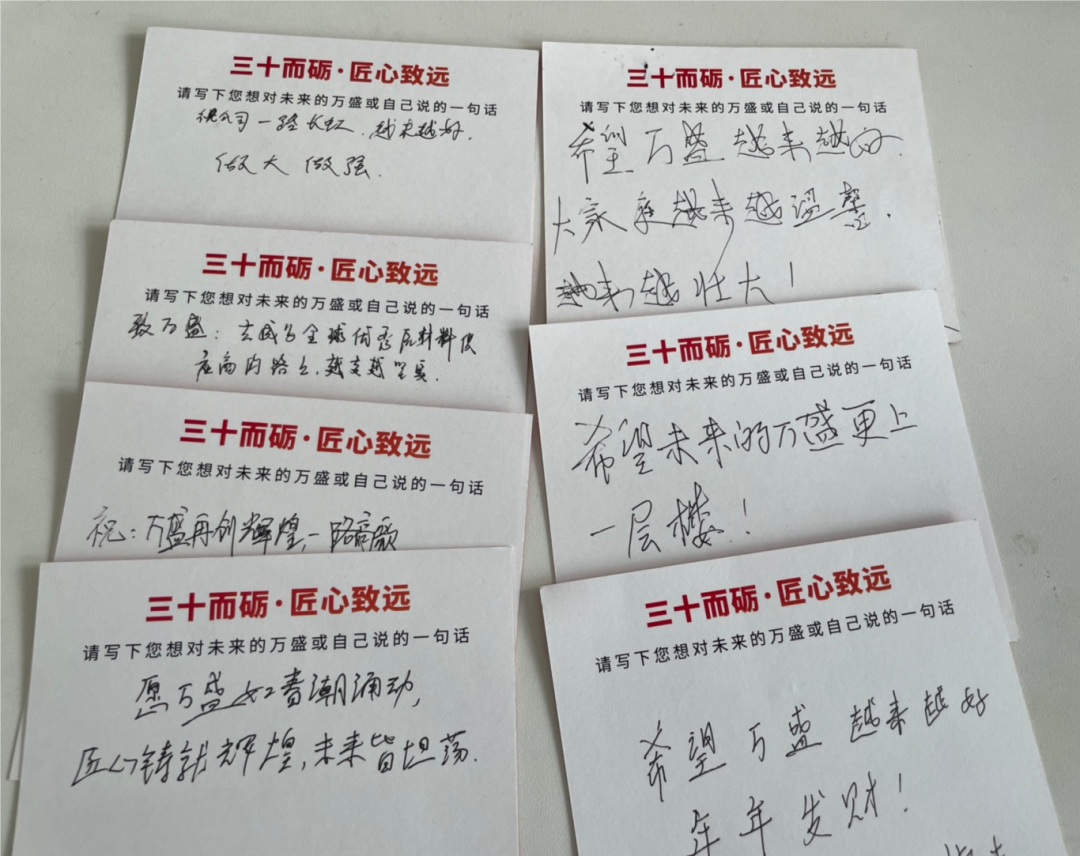 三十而砺·匠心致远
请写下您想对未来的万盛或自己说的一句话
祝公司一路长虹，越来越好，
做大做强.
三十而砺·匠心致远
请写下您想对未来的万盛或自己说的一句话
致万盛：去成为全球优秀原材料供
应商的路上,越走越坚实.
三十而砺·匠心致远
请写下您想对未来的万盛或自己说的一句话
祝：万盛再创辉煌,一路高歌
三十而砺·匠心致远
请写下您想对未来的万盛或自己说的一句话
愿万盛如春潮涌动,
匠心铸就辉煌,未来皆坦荡.
三十而砺·匠心致远
请写下您想对未来的万盛或自己说的一句话
希望万盛越来越好.
大家庭越来越温馨.
越来越壮大!
三十而砺·匠心致远
请写下您想对未来的万盛或自己说的一句话
希望未来的万盛更上
一层楼!
三十而砺·匠心致远
请写下您想对未来的万盛或自己说的一句话
希望万盛越来越好
年年发财!